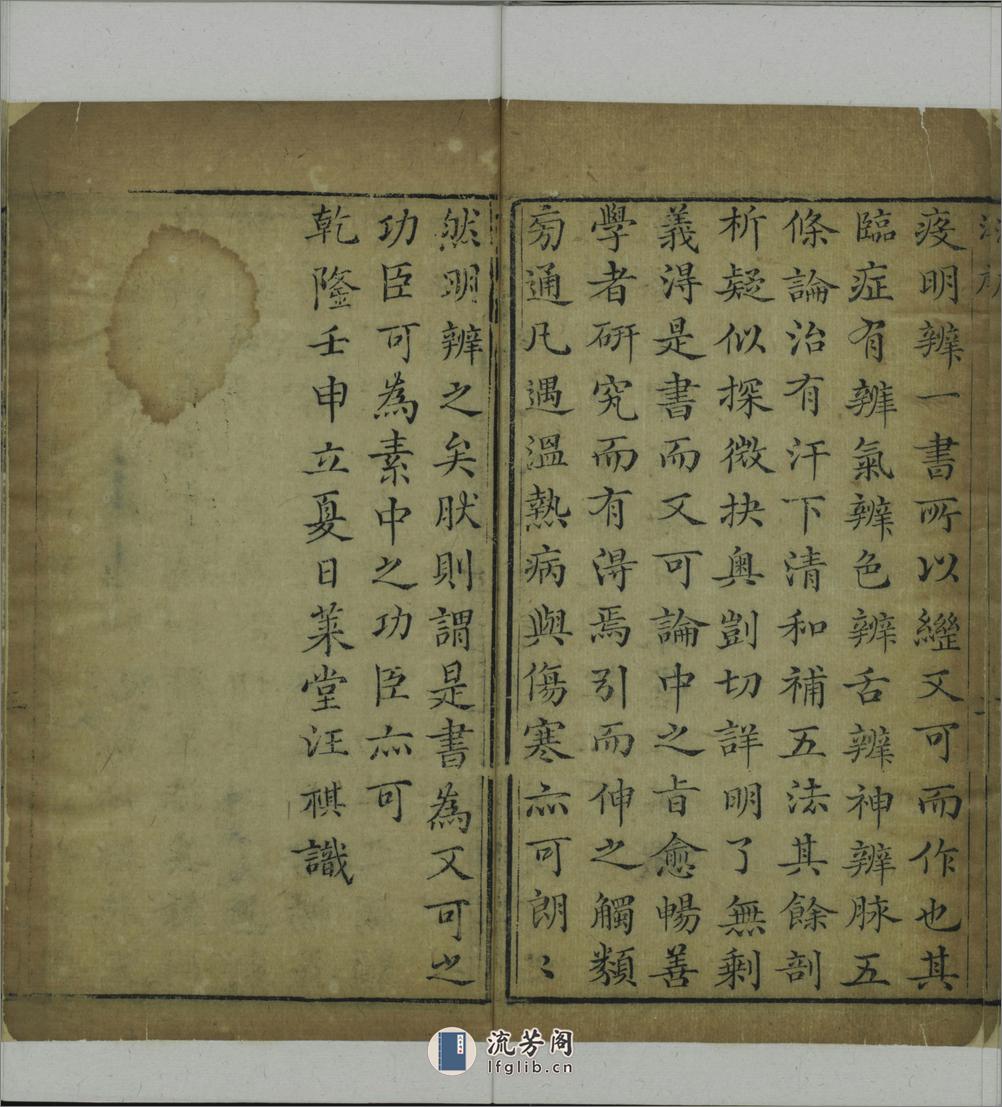 疫明辨一書所以繼又可而作也其
臨症有辨氣辨色辨舌辨神辨脉五
條論治有汗下清和補五法其餘剖
析疑似探微抉奥剴切詳明了無剩
義得是書而又可論中之旨愈暢善
學者研究而有得焉引而伸之觸類
旁通凡遇溫熱病與傷寒亦可朗〻
然明辨之矣肰則謂是書為又可之
功臣可為素中之功臣亦可
乾隆壬申立夏日萊堂汪祺識
流芳阁
lfglib.cn